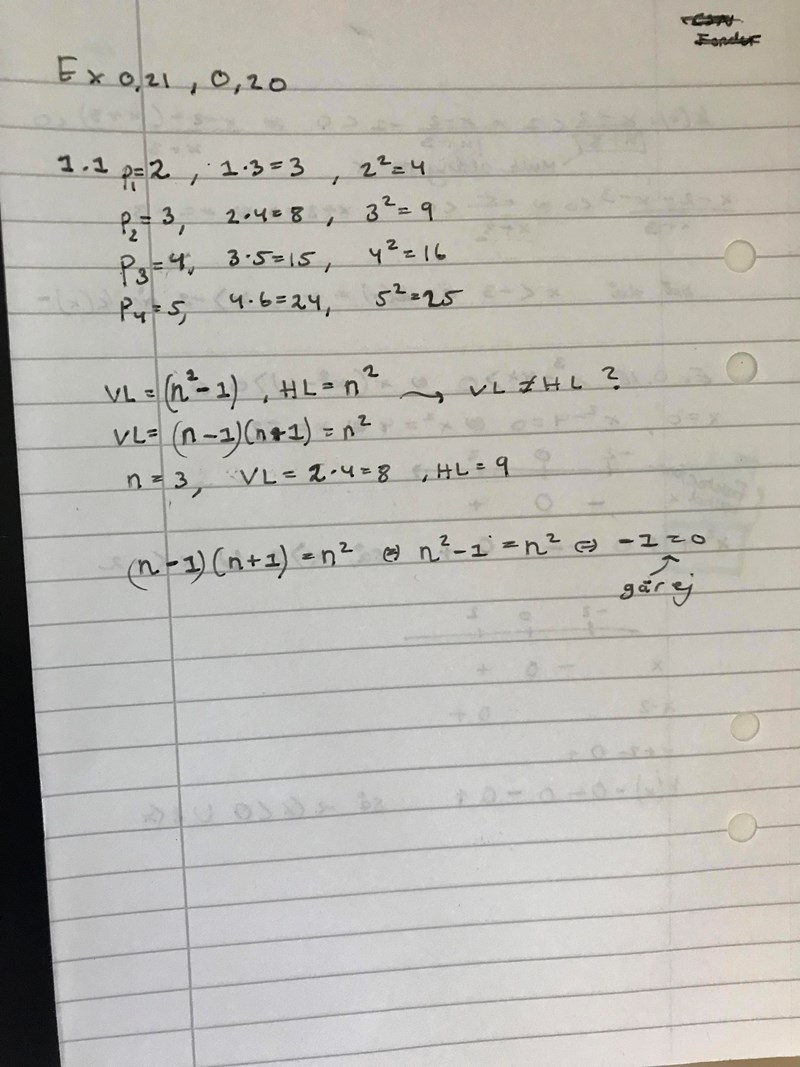 Ex 0,21, 0,20
1.1 p₁=2, 1·3=3, 2²=4
p₂=3, 2·4=8, 3²=9
p₃=4, 3·5=15, 4²=16
p₄=5, 4·6=24, 5²=25
VL=(n²-1), HL=n² → VL≠HL?
VL=(n-1)(n+1)=n²
n=3, VL=2·4=8, HL=9
(n-1)(n+1)=n² ⇔ n²-1=n² ⇔ -1=0
går ej